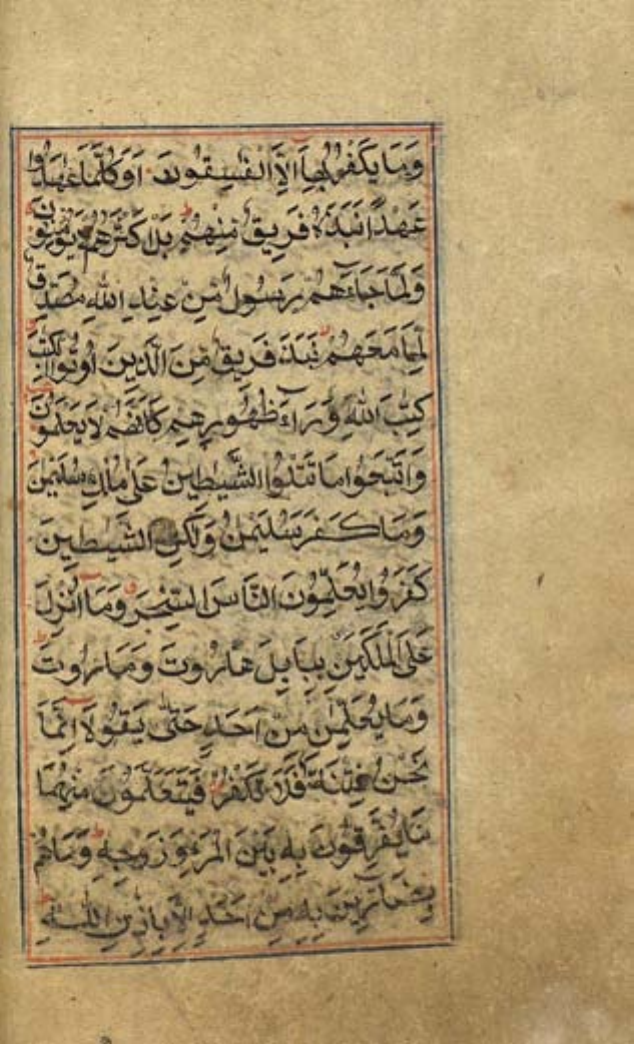 وَمَا يَكْفُرُ بِهَا إِلَّا الْفٰسِقُونَ اَوَكُلَّمَا عٰهَدُوا
عَهْدًا نَبَذَهُ فَرِيقٌ مِنْهُمْ بَلْ اَكْثَرُهُمْ لَا يُؤْمِنُونَ
وَلَمَّا جَاءَهُمْ رَسُولٌ مِنْ عِنْدِ اللّٰهِ مُصَدِّقٌ
لِمَا مَعَهُمْ نَبَذَ فَرِيقٌ مِنَ الَّذِينَ اُوتُوا الْكِتٰبَ
كِتٰبَ اللّٰهِ وَرَاءَ ظُهُورِهِمْ كَاَنَّهُمْ لَا يَعْلَمُونَ
وَاتَّبَعُوا مَا تَتْلُوا الشَّيٰطِينُ عَلٰى مُلْكِ سُلَيْمٰنَ
وَمَا كَفَرَ سُلَيْمٰنُ وَلٰكِنَّ الشَّيٰطِينَ
كَفَرُوا يُعَلِّمُونَ النَّاسَ السِّحْرَ وَمَا اُنْزِلَ
عَلَى الْمَلَكَيْنِ بِبَابِلَ هَارُوتَ وَمَارُوتَ
وَمَا يُعَلِّمٰنِ مِنْ اَحَدٍ حَتّٰى يَقُولَا اِنَّمَا
نَحْنُ فِتْنَةٌ فَلَا تَكْفُرْ فَيَتَعَلَّمُونَ مِنْهُمَا
مَا يُفَرِّقُونَ بِهِ بَيْنَ الْمَرْءِ وَزَوْجِهِ وَمَا هُمْ
بِضَارِّينَ بِهِ مِنْ اَحَدٍ اِلَّا بِاِذْنِ اللّٰهِ